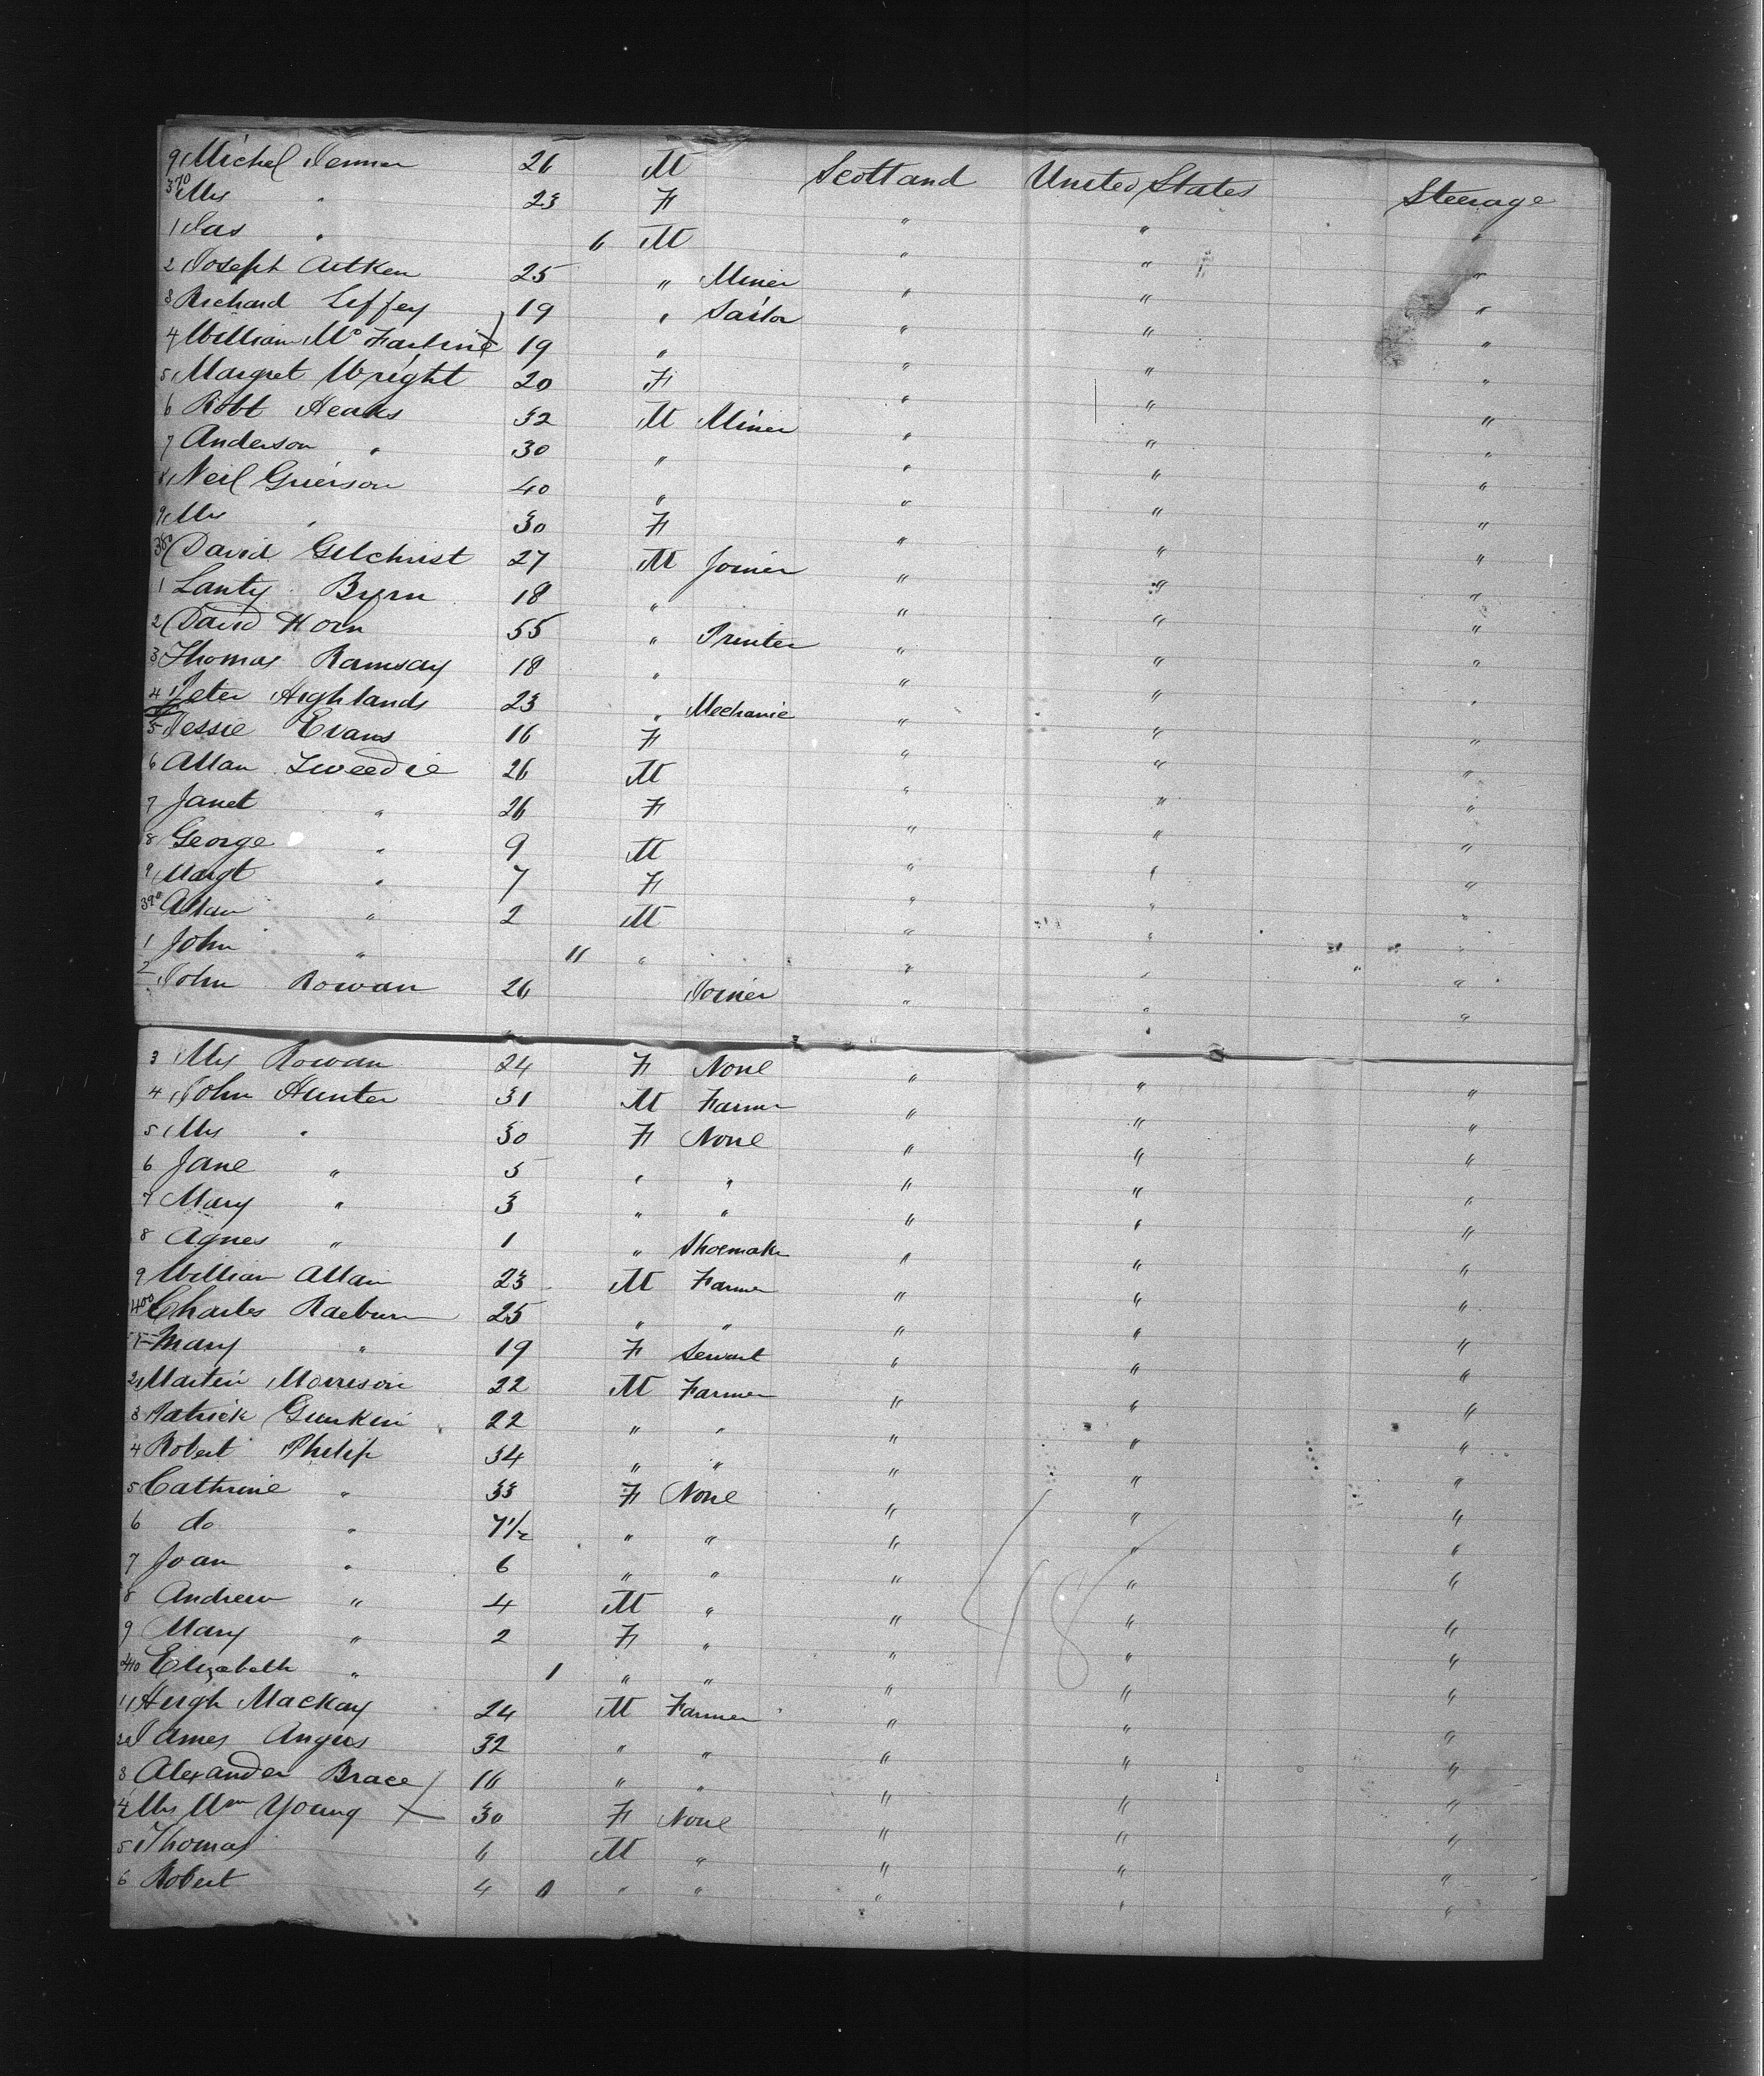 9 Michel Jenner 26 M Scotland United States Steerage
370 Mrs " 23 F " " "
1 Jas " 6 M " " "
2 Joseph Aitken 25 " Miner " " "
3 Richard Liffey 19 " Sailor " " "
4 William Mc 19 " " " "
5 Margret Wright 20 F " " "
6 Robt Heaks 32 M Miner " " "
7 Anderson " 30 " " " "
8 Neil Grierson 40 " " " "
9 Mrs " 30 F " " "
380 David Gilchrist 27 M Joiner " " "
1 Lanty Byrn 18 " " " "
2 David Horn 55 " Printer " " "
3 Thomas Ramsay 18 " " " "
4 Peter Highlands 23 " Mechanic " " "
5 Jessie Evans 16 F " " "
6 Allan Tweedie 26 M " " "
7 Janet " 26 F " " "
8 George " 9 M " " "
9 Margt " 7 F " " "
390 Allan " 2 M " " "
1 John " 11 " " " "
2 John Rowan 26 Joiner " " "
3 Mrs Rowan 24 F None " " "
4 John Hunter 31 M Farmer " " "
5 Mrs " 30 F None " " "
6 Jane " 5 " " " " "
7 Mary " 3 " " " " "
8 Agnes " 1 " Shoemaker " " "
9 William Allan 23 M Farmer " " "
400 Charles Raeburn 25 " " " " "
1 Mary " 19 F Servant " " "
2 Martin Morrison 22 M Farmer " " "
3 Patrick 22 " " " " "
4 Robert Philip 34 " " " " "
5 Cathrine " 33 F None " " "
6 do " 7 1/2 " " " " "
7 Joan " 6 " " " " "
8 Andrew " 4 M " " " "
9 Mary " 2 F " " " "
410 Elizabeth " 1 " " " " "
1 Hugh Mackay 24 M Farmer " " "
2 James Angus 32 " " " " "
3 Alexander Brace 16 " " " " "
4 Mrs Wm Young 30 F None " " "
5 Thomas 6 M " " " "
6 Robert 4 " " " " "
48